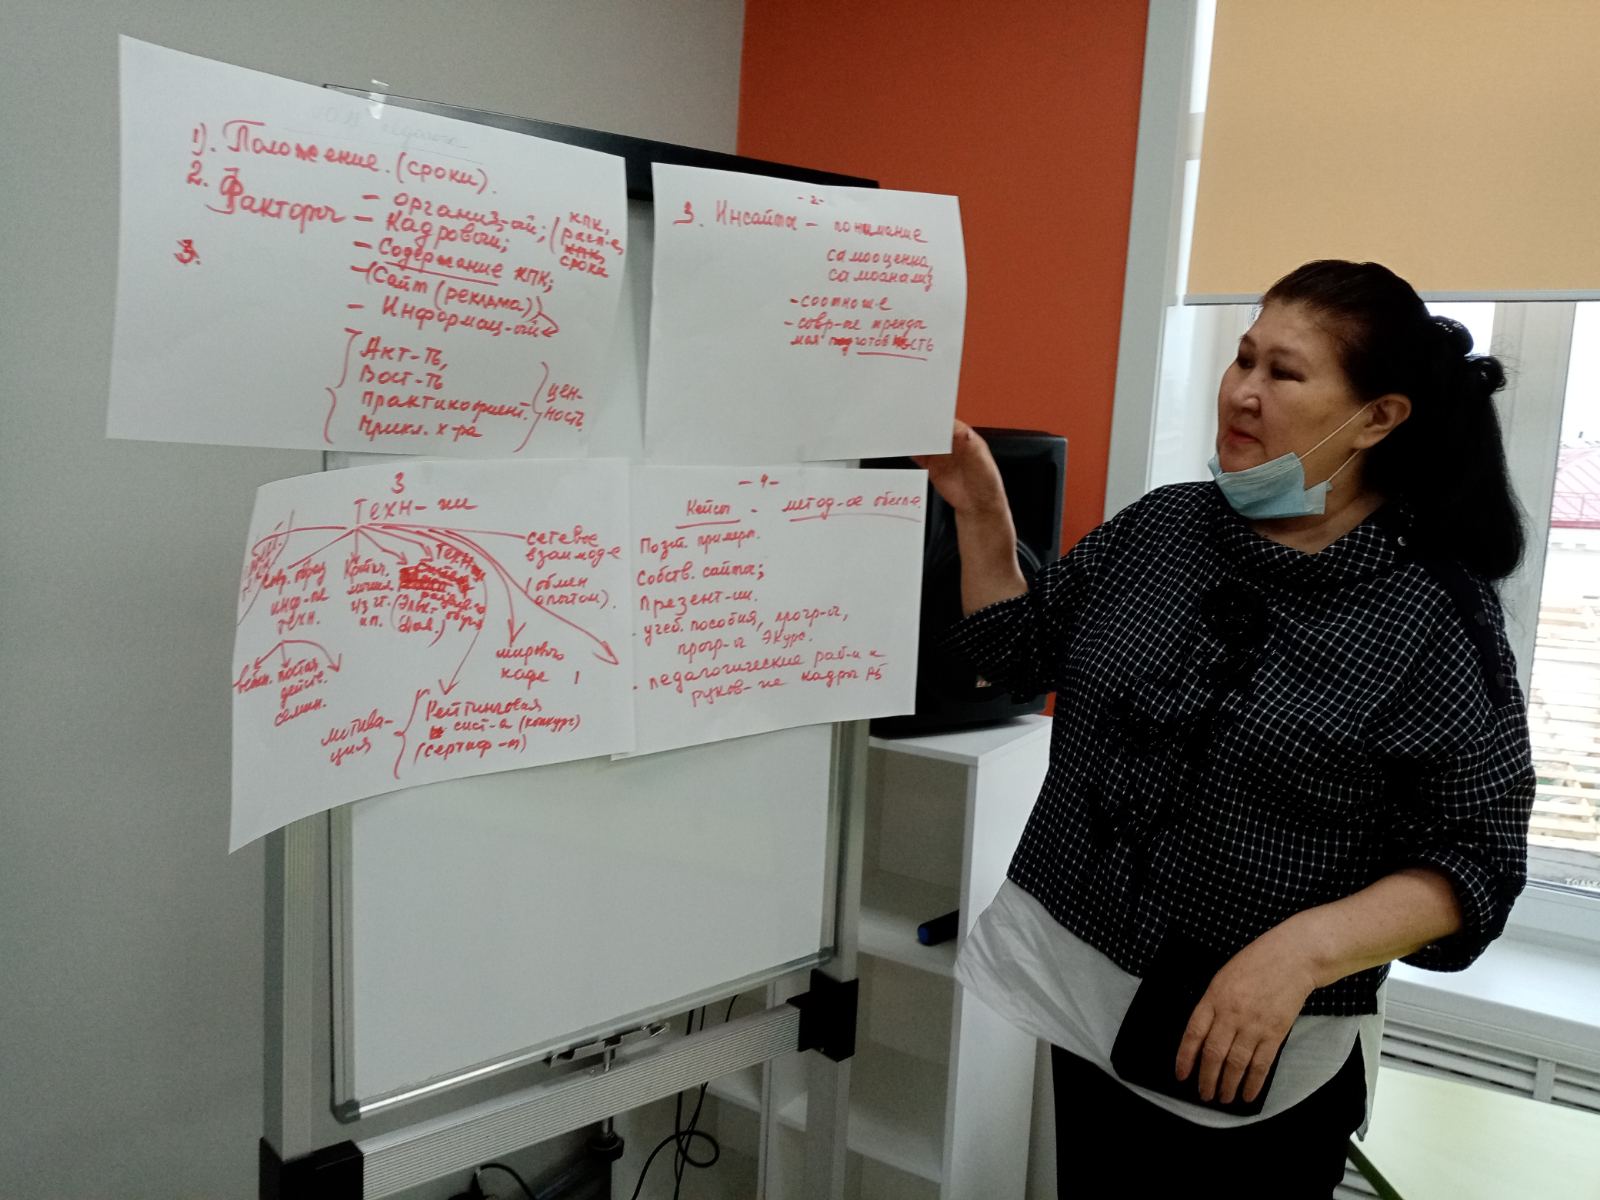 1). Положение. (сроки).
2. Факторы
- организ-ый; (кпк,
- Кадровый;
сроки
- Содержание кпк;
- (Сайт (реклама))
- Информац-ый
3.
Акт-ть,
Вост-ть
практикориент.
Прикл. х-ра
цен-
ность
- 2 -
3. Инсайты - понимание
самооценка,
самоанализ
- соотнош-е
- совр-ые тренды
моя подготов-сть
3
Техн-ии
сетевое
взаимод-е
(обмен
опытом).
мировое
кафе
техн.
пост.
действ.
семин.
мотива-
ция
Рейтинговая
сист-а (конкурс)
(сертиф-т)
- 4 -
Кейсы - метод-ое обесп-е.
Позт. примеры.
Собств. сайты;
Презент-ии.
- учеб. пособия, прогр-ы,
прогр-ы Э курс.
- педагогические раб-и и
руков-ие кадры РБ